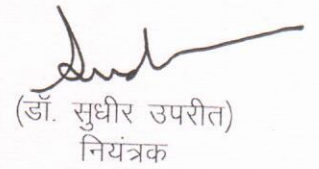 (डॉ. सुधीर उपरीत)
नियंत्रक